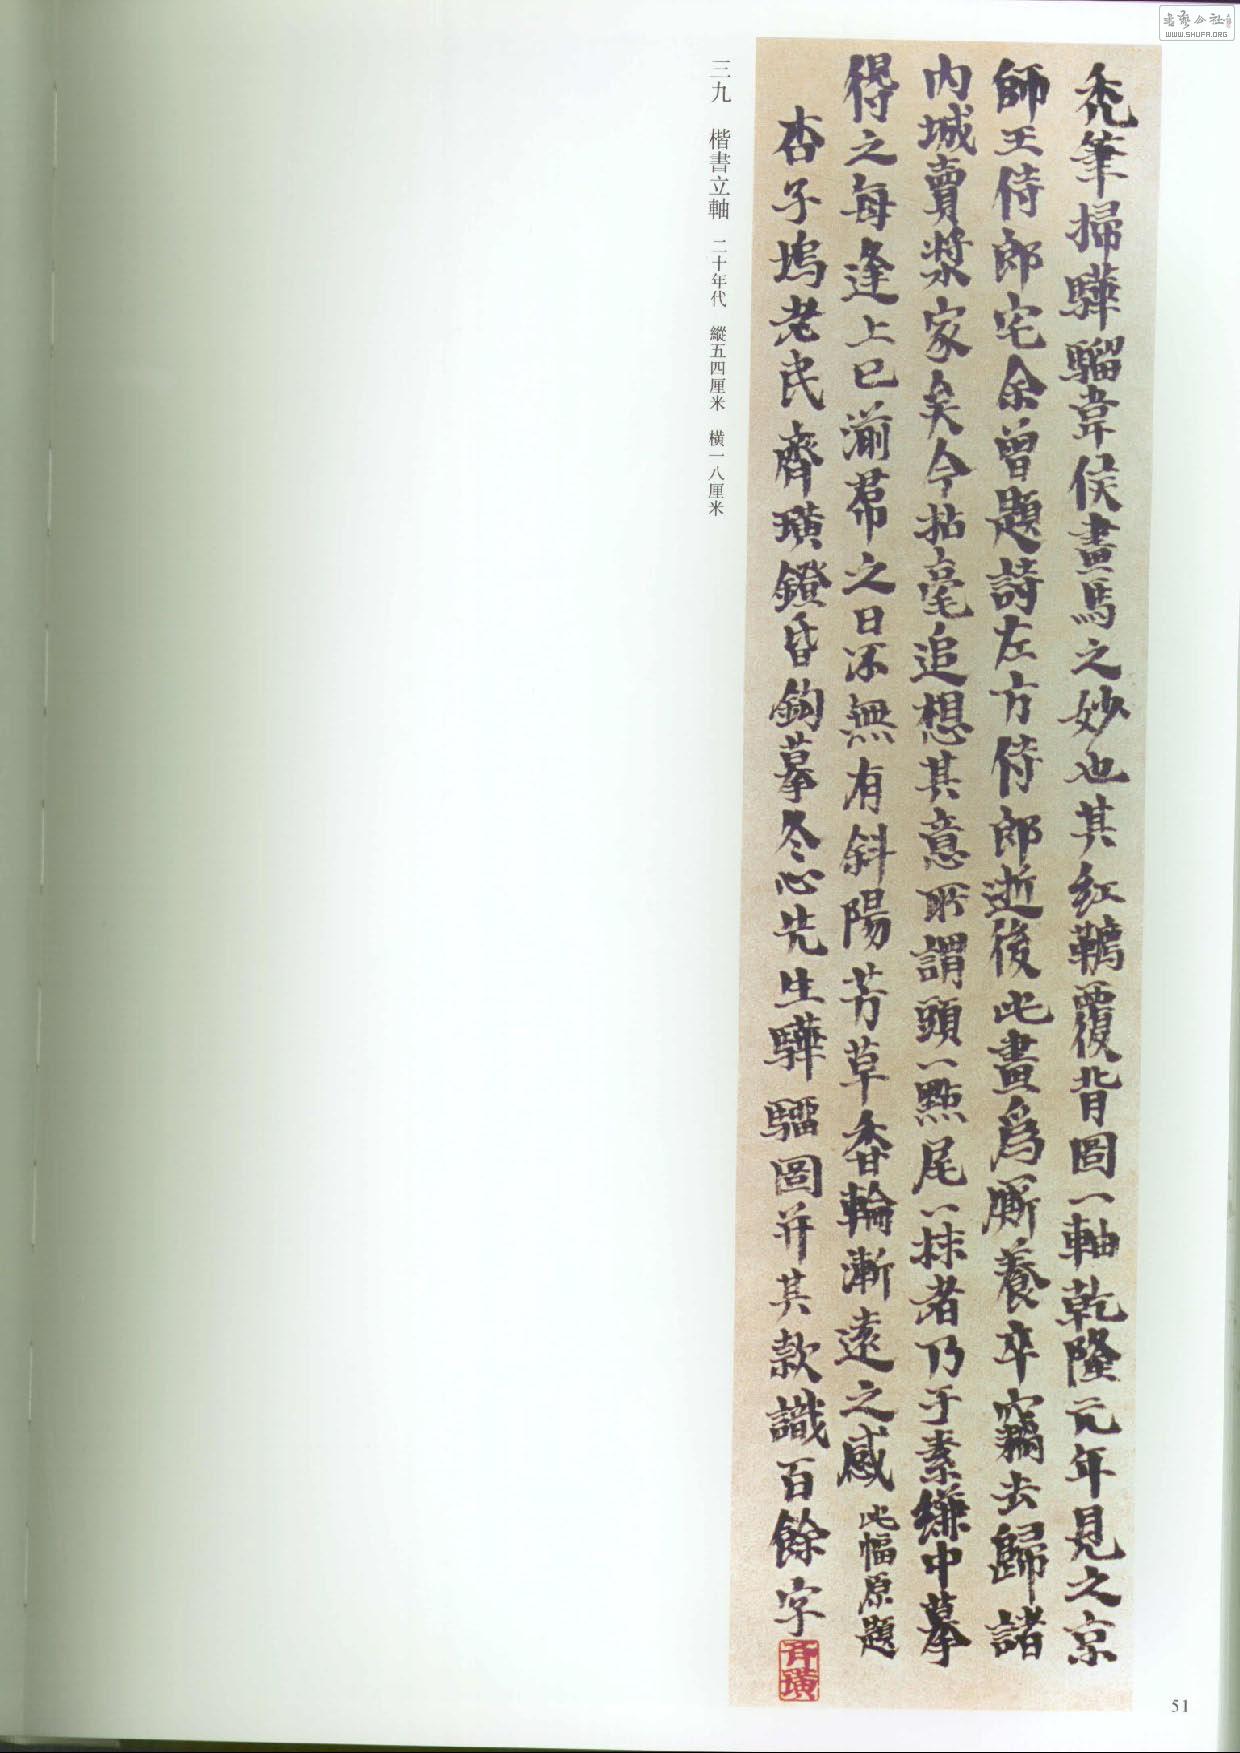 禿筆掃驊騮韋侯畫馬之妙也其紅韉覆背圖一軸乾隆元年見之京
師王侍郎宅余曾題詩左方侍郎逝後此畫爲厮養卒竊去歸諸
内城賣漿家矣今拈毫追想其意所謂頭一點尾一抹者乃于素縑中摹
得之每逢上巳湔帬之日不無有斜陽芳草香輪漸遠之感 此幅原題
杏子塢老民齊璜鐙昏鉤摹冬心先生驊騮圖并其款識百餘字
齊璜
三九 楷書立軸 二十年代 縱五四厘米 橫一八厘米
51
WWW.SHUFA.ORG